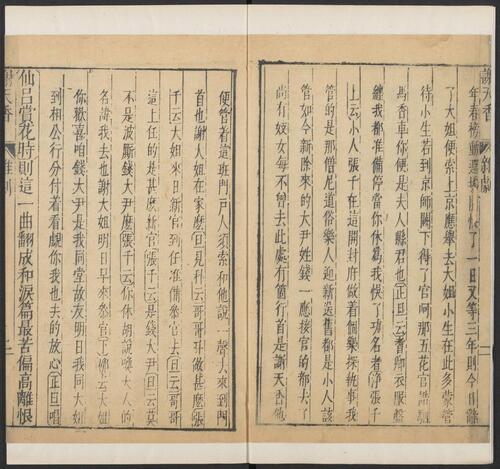 謝天香 雜劇
年春榜動選塲 了一日又等三年則今日辭
了大姐便索上京應舉去大姐小生在此多蒙管
待小生若到京師闕下得了官呵那五花官誥駟
馬香車你便是夫人縣君也正旦云耆卿衣服盤
纏我都准備停當你休爲我悮了功名者淨張千
上云小人張千在這開封府做着個樂探執事我
管的是那僧尼道俗樂人迎新送舊都是小人該
管如今新除來的大尹姓錢一應接官的都去了
尚有妓女每不曾去此處有箇行首是謝天香他
便管着這班門戶人須索和他說一聲去來到門
首也謝大姐在家麽旦見科云哥哥呌做甚麽張
千云大姐來日新官到任准備叅官去旦云哥哥
這上任的是甚麽新官張千云是錢大尹旦云莫
不是波厮錢大尹麽張千云你休胡說喚大人的
名諱我去也謝大姐明日早來叅官下柳云大姐
你歡喜咱錢大尹是我同堂故友明日我同大姐
到相公行分付着看覷你我也去的放心正旦唱
仙呂賞花時則這一曲翻成和淚篇最苦偏高離恨
謝天香 雜劇 二